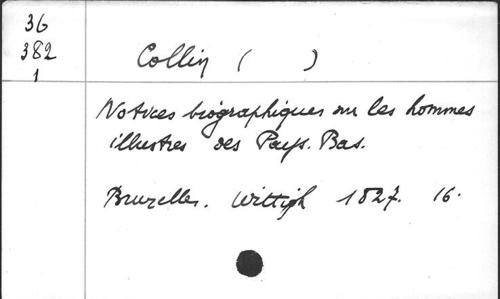 36
382
1
Collin ( )
Notices biographiques sur les hommes
illustres des Pays. Bas.
Bruxelles. Wittigh 1827. 16.